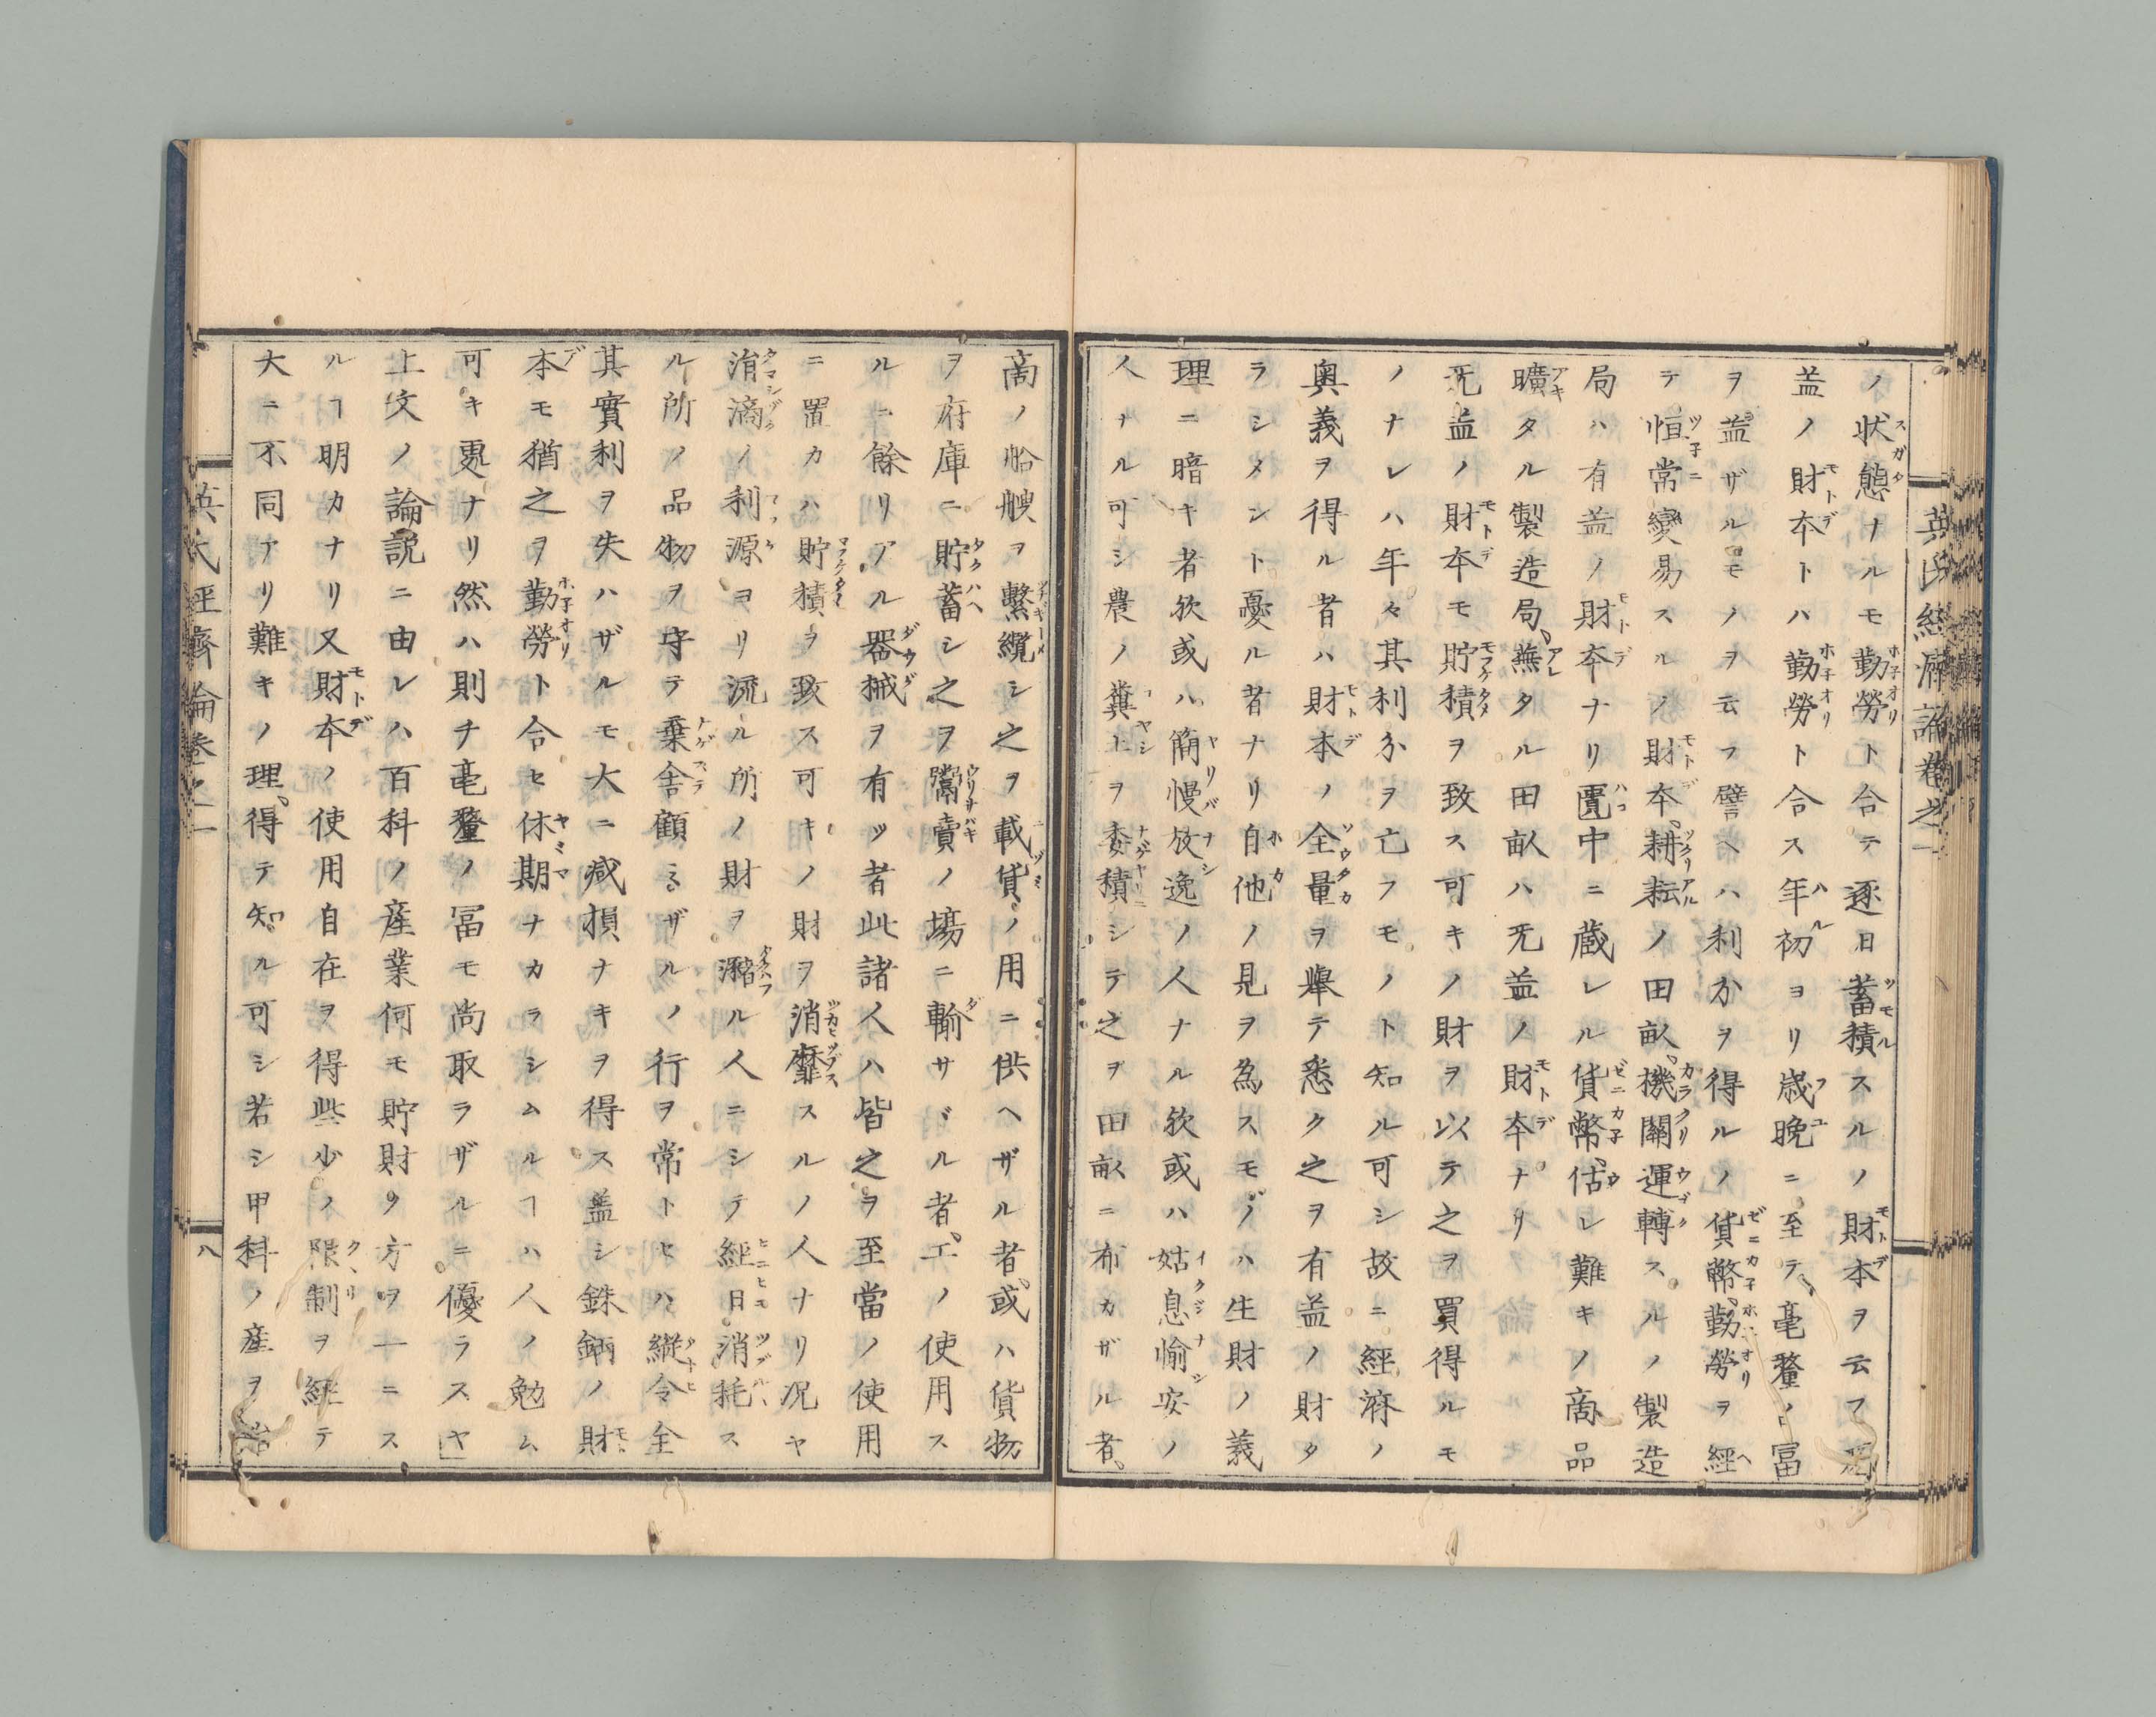 英氏經濟論卷之一
ノ状態ナルモ勤勞ト合テ逐日蓄積スルノ財本ヲ云フ
益ノ財本トハ勤勞ト合ス年初ヨリ歳晩ニ至テ毫釐ノ冨
ヲ益ザルモノヲ云フ譬ヘハ利分ヲ得ルノ貨幣勤勞ヲ經
テ恒常變易スルノ財本耕耘ノ田畝機關運轉スルノ製造
局ハ有益ノ財本ナリ匱中ニ蔵レル貨幣估レ難キノ商品
曠タル製造局蕪タル田畝ハ无益ノ財本ナリ
无益ノ財本モ貯積ヲ致ス可キノ財ヲ以テ之ヲ買得ルモ
ノナレハ年々其利分ヲ亡フモノト知ル可シ故ニ經濟ノ
奥義ヲ得ル者ハ財本ノ全量ヲ擧テ悉ク之ヲ有益ノ財タ
ラシメント憂ル者ナリ自他ノ見ヲ爲スモノハ生財ノ義
理ニ暗キ者欤或ハ簡慢放逸ノ人ナル欤或ハ姑息愉安ノ
人ナル可シ農ノ糞上ヲ委積シテ之ヲ田畝ニ布カザル者
商ノ舩艘ヲ繫纜シ之ヲ載貨ノ用ニ供ヘザル者或ハ貨物
ヲ府庫ニ貯蓄シ之ヲ鬻賣ノ塲ニ輸サヾル者工ノ使用ス
ルニ餘リアル器械ヲ有ツ者此諸人ハ皆之ヲ至當ノ使用
ニ置カハ貯積ヲ致ス可キノ財ヲ消靡スルノ人ナリ况ヤ
涓滴ノ利源ヨリ流ル所ノ財ヲ瀦ル人ニシテ經日消耗ス
ル所ノ品物ヲ守テ棄舎顧ミザルノ行ヲ常トセハ縱令全
其實利ヲ失ハザルモ大ニ减損ナキヲ得ス盖シ銖錙ノ財
本モ猶之ヲ勤勞ト合セ休期ナカラシムルヿハ人ノ勉ム
可キ更ナリ然ハ則チ毫釐ノ冨モ尚取ラザルニ優ラスヤ」
上文ノ論説ニ由レハ百科ノ産業何モ貯財ノ方ヲ一ニス
ルヿ明カナリ又財本ノ使用自在ヲ得些少ノ限制ヲ經テ
大ニ不同アリ難キノ理得テ知ル可シ若シ甲科ノ産ヲ
英氏經濟論卷之一
八